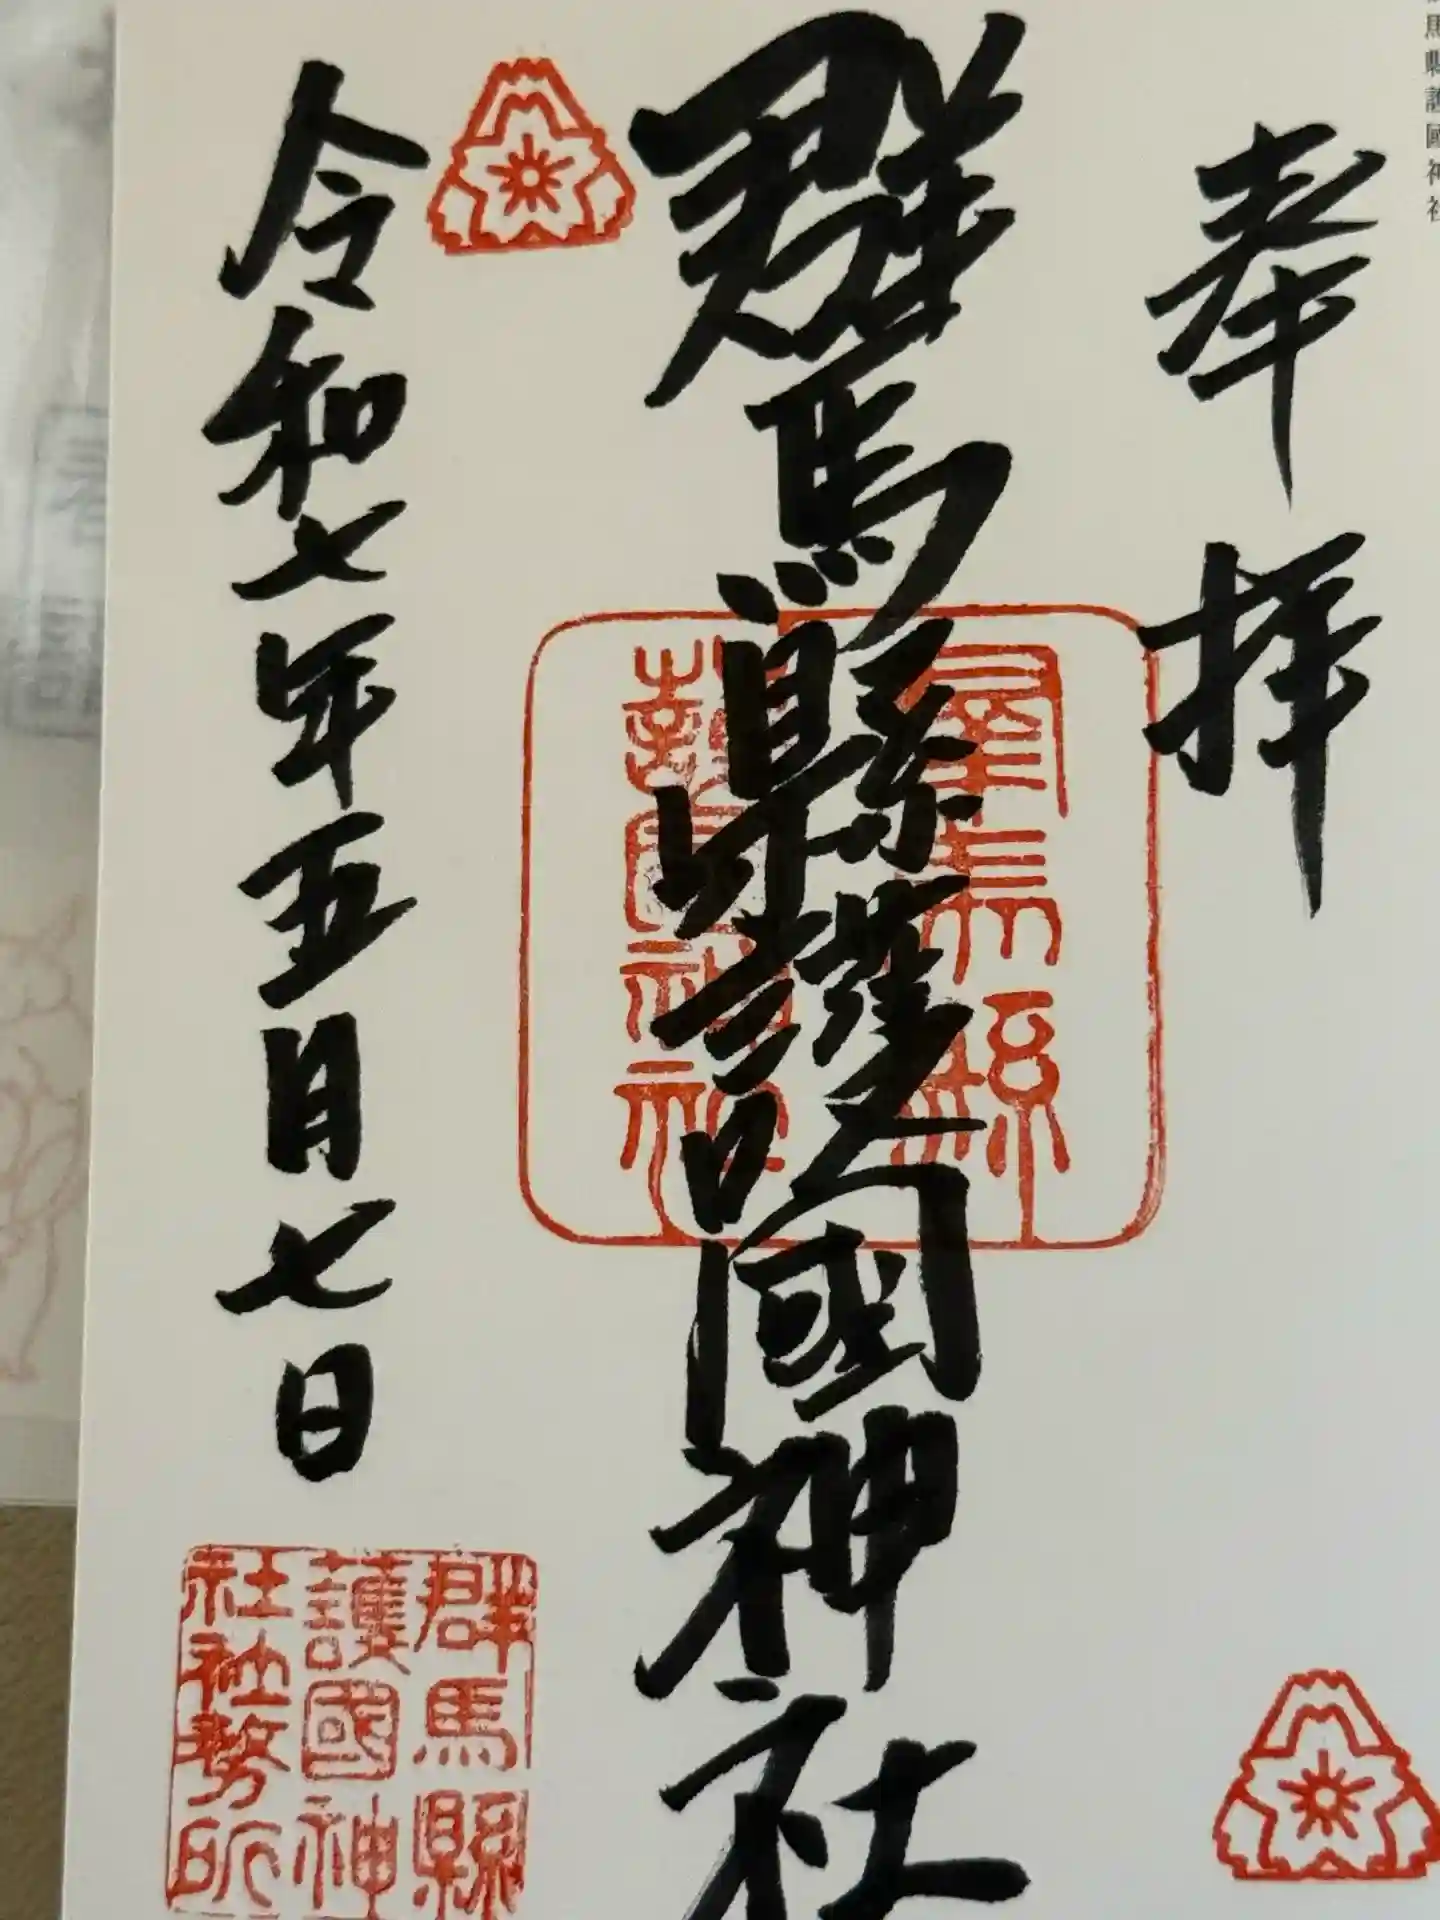 馬縣護國神社
奉拝
群馬縣護國神社
令和七年五月七日
群馬縣
護國神社
群馬縣
護國神
社社務所